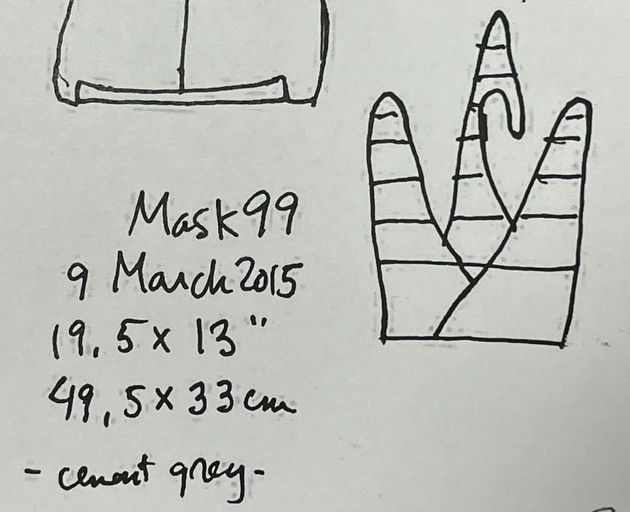 Mask 99
9 March 2015
19,5 x 13"
49,5 x 33 cm
- cement grey -